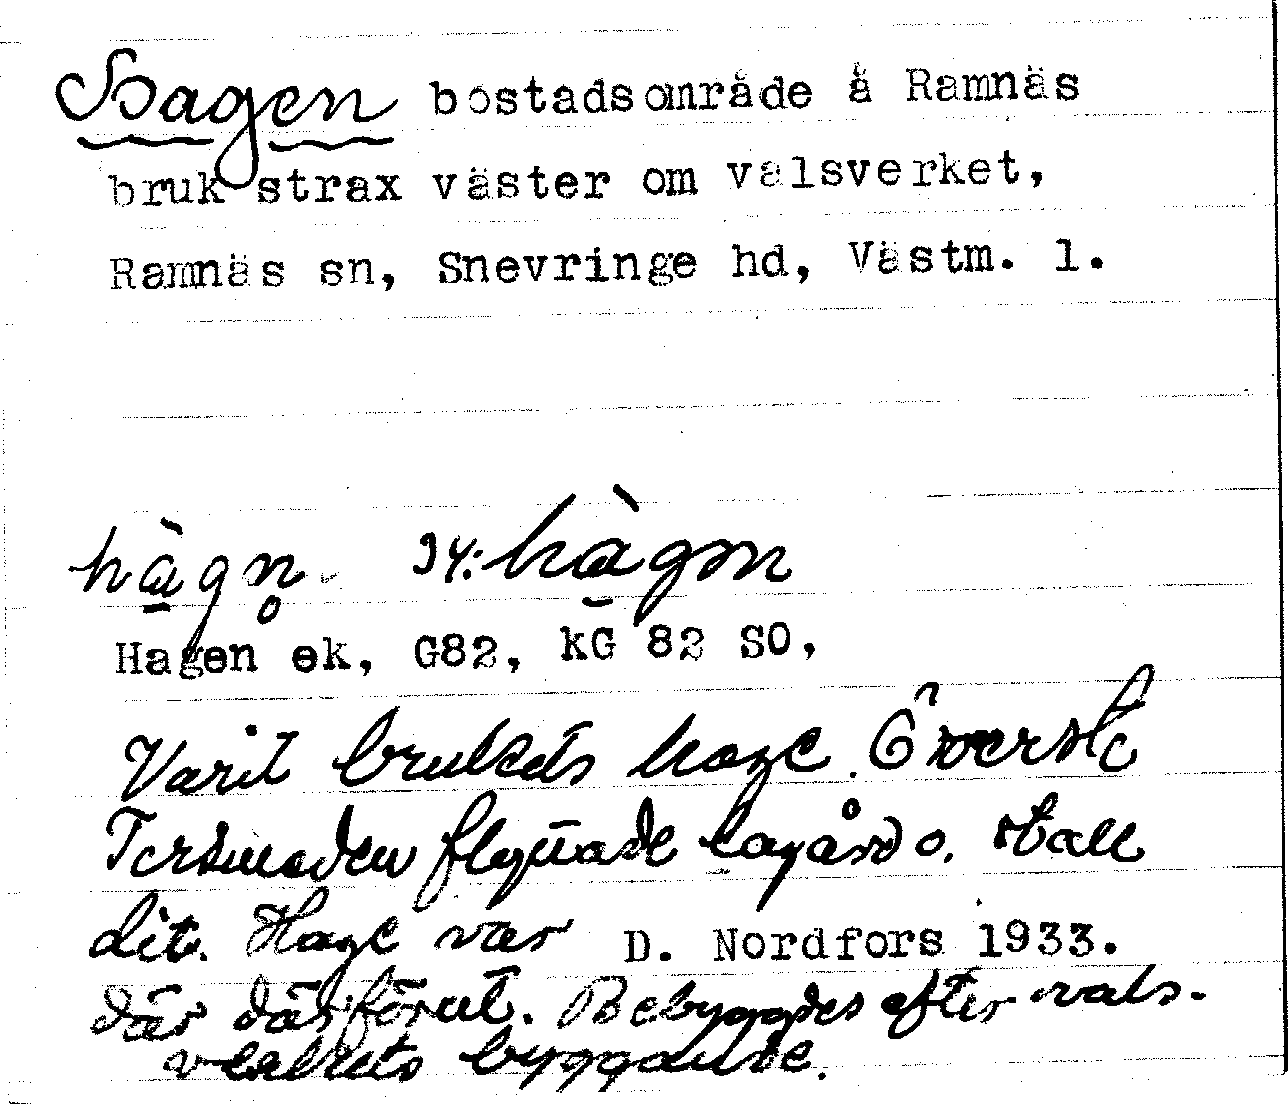 Hagen bostadsområde å Ramnäs
bruk strax väster om valsverket,
Ramnäs sn, Snevringe hd, Västm. l.
hàgn̥ 34: hàgən
Hagen ek, G82, kG 82 SO,
Varit brukets hage. Överste
Tersmeden flyttade lagård o. stall
dit. Hage var D. Nordfors 1933.
där därförut. Bebyggdes efter vals-
verkets byggande.